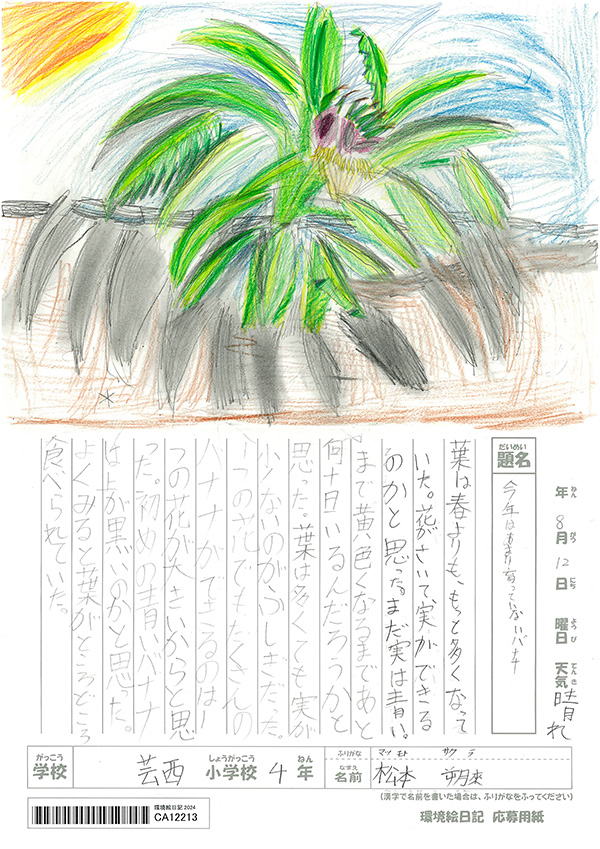 年 8月 12日 曜日 天気 晴れ
ねん がつ にち ようび てんき
だいめい
題名
今年はあまり育っていないバナナ
葉は春よりも、もっと多くなって
いた。花がさいて、実ができる
のかと思った。まだ実は青い。
まで黄色くなるまであと
何十日いるんだろうかと
思った。葉は多くても実が
少ないのがふしぎだった。
一つの花でもたくさんの
バナナができるのは一
つの花が大きいからと思
った。初めの青いバナナ
は上が黒いのかと思った。
よくみると葉がところどころ
食べられていた。
がっこう しょうがっこう ねん
学校 芸西 小学校 4年
ふりがな マツモト サクラ
なまえ
名前 松本 朔來
(漢字で名前を書いた場合は、ふりがなをふってください)
環境絵日記2024
CA12213
環境絵日記 応募用紙